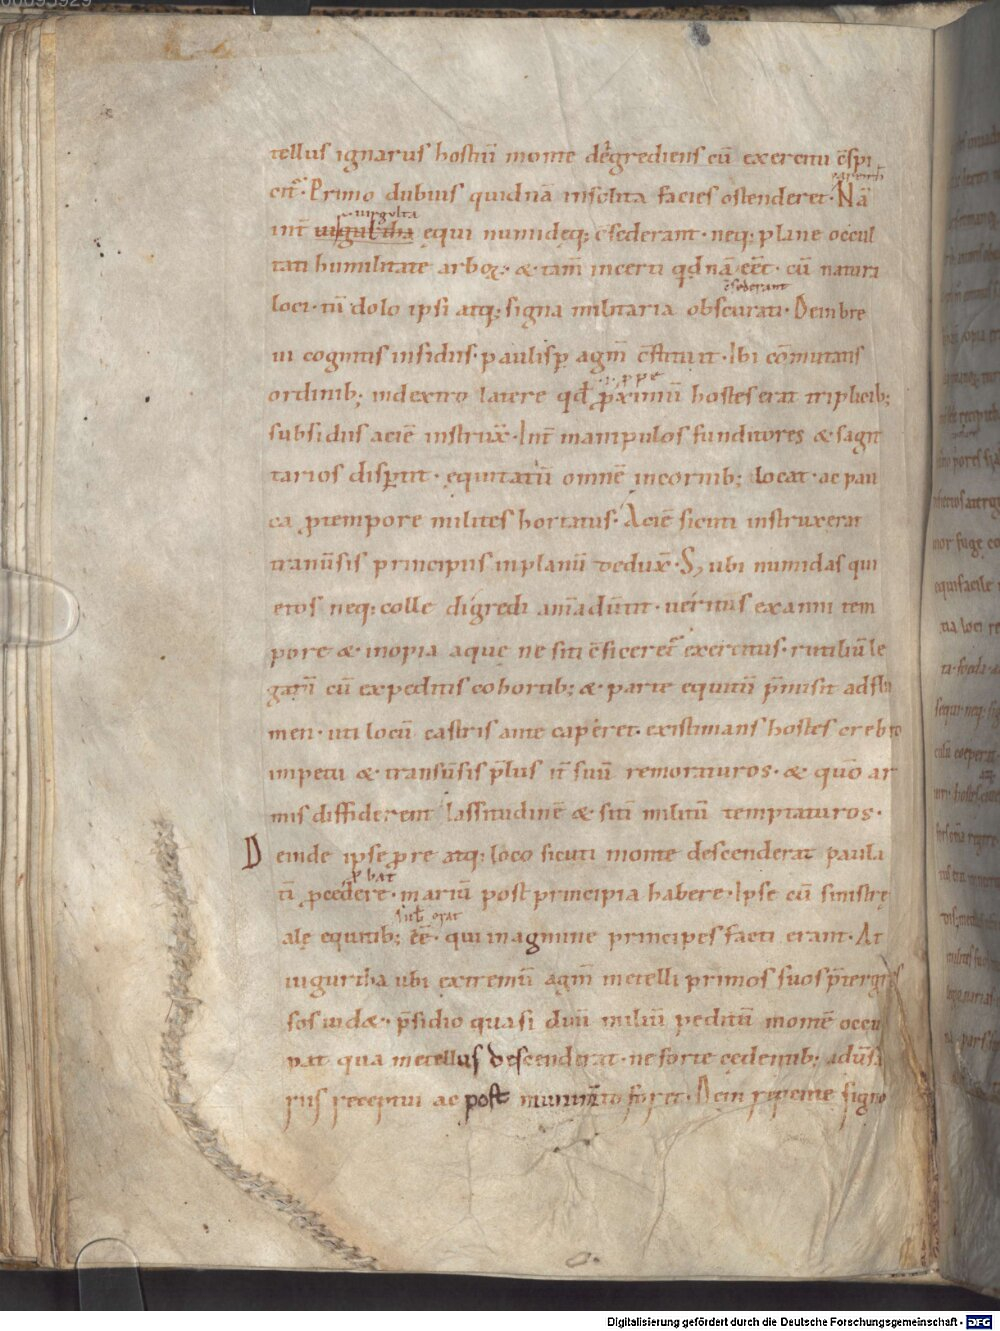 00095929
tellus ignarus hostiū monte degrediens cū exercitu ēspi
cit͛. Primo dubius quidnā insolita facies ostenderet. Nā
virgulta
int̄ uirgultha equi numideq; c̄sederant. neq; plane occul
tati humilitate arboꝝ. & tam̄ incerti qd̄nā eēt. cū natura
c̄sederant
loci. tū dolo ipsi atq; signa militaria obscurati. Dein bre
ui cognitis insidiis. paulisꝑ agm̄ c̄stituit. Ibi cōmutatis
ꝓpe
ordinib; indextro latere qd̄ ꝓximū hostes erat triplicib;
subsidiis aciē instrux̄. Int̄ manipulos funditores & sagit
tarios disꝑtit. equitatū omnē incornib; locat. ac pau
ca ꝓtempore milites hortatus. Aciē sicuti instruxerat
tranūsis principiis inplanū dedux̄. S; ubi numidas qui
etos neq; colle digredi anīaduertit. ueritus exanni tem
pore & inopia aque ne siti c̄ficeret͛ exercitus. rutiliū le
gatū cū expeditis cohortib; & parte equitū p̄misit adflu
men. uti locū castris ante caperet. existimans hostes crebro
impetu & transūsis p̄lius it̄ suū remoraturos. & qūo ar
mis diffiderent lassitudinē & sitī militū temptaturos.
Deinde ipse ꝓre atq; loco sicuti monte descenderat paula
ꝓbat
tī ꝓcedere. mariū post principia habere. Ipse cū sinistrę
alę equitib; eē. qui inagmine principes facti erant. At
iugurtha ubi extremū agm̄ metelli primos suos p̄tergres
sos uid&. p̄sidio quasi duū miliū peditū montē occu
pat qua metellus descenderat. ne forte cedentib; aduͥsa
riis receptui ac post munim̄to foret. Dein repente signo
Digitalisierung gefördert durch die Deutsche Forschungsgemeinschaft - DFG